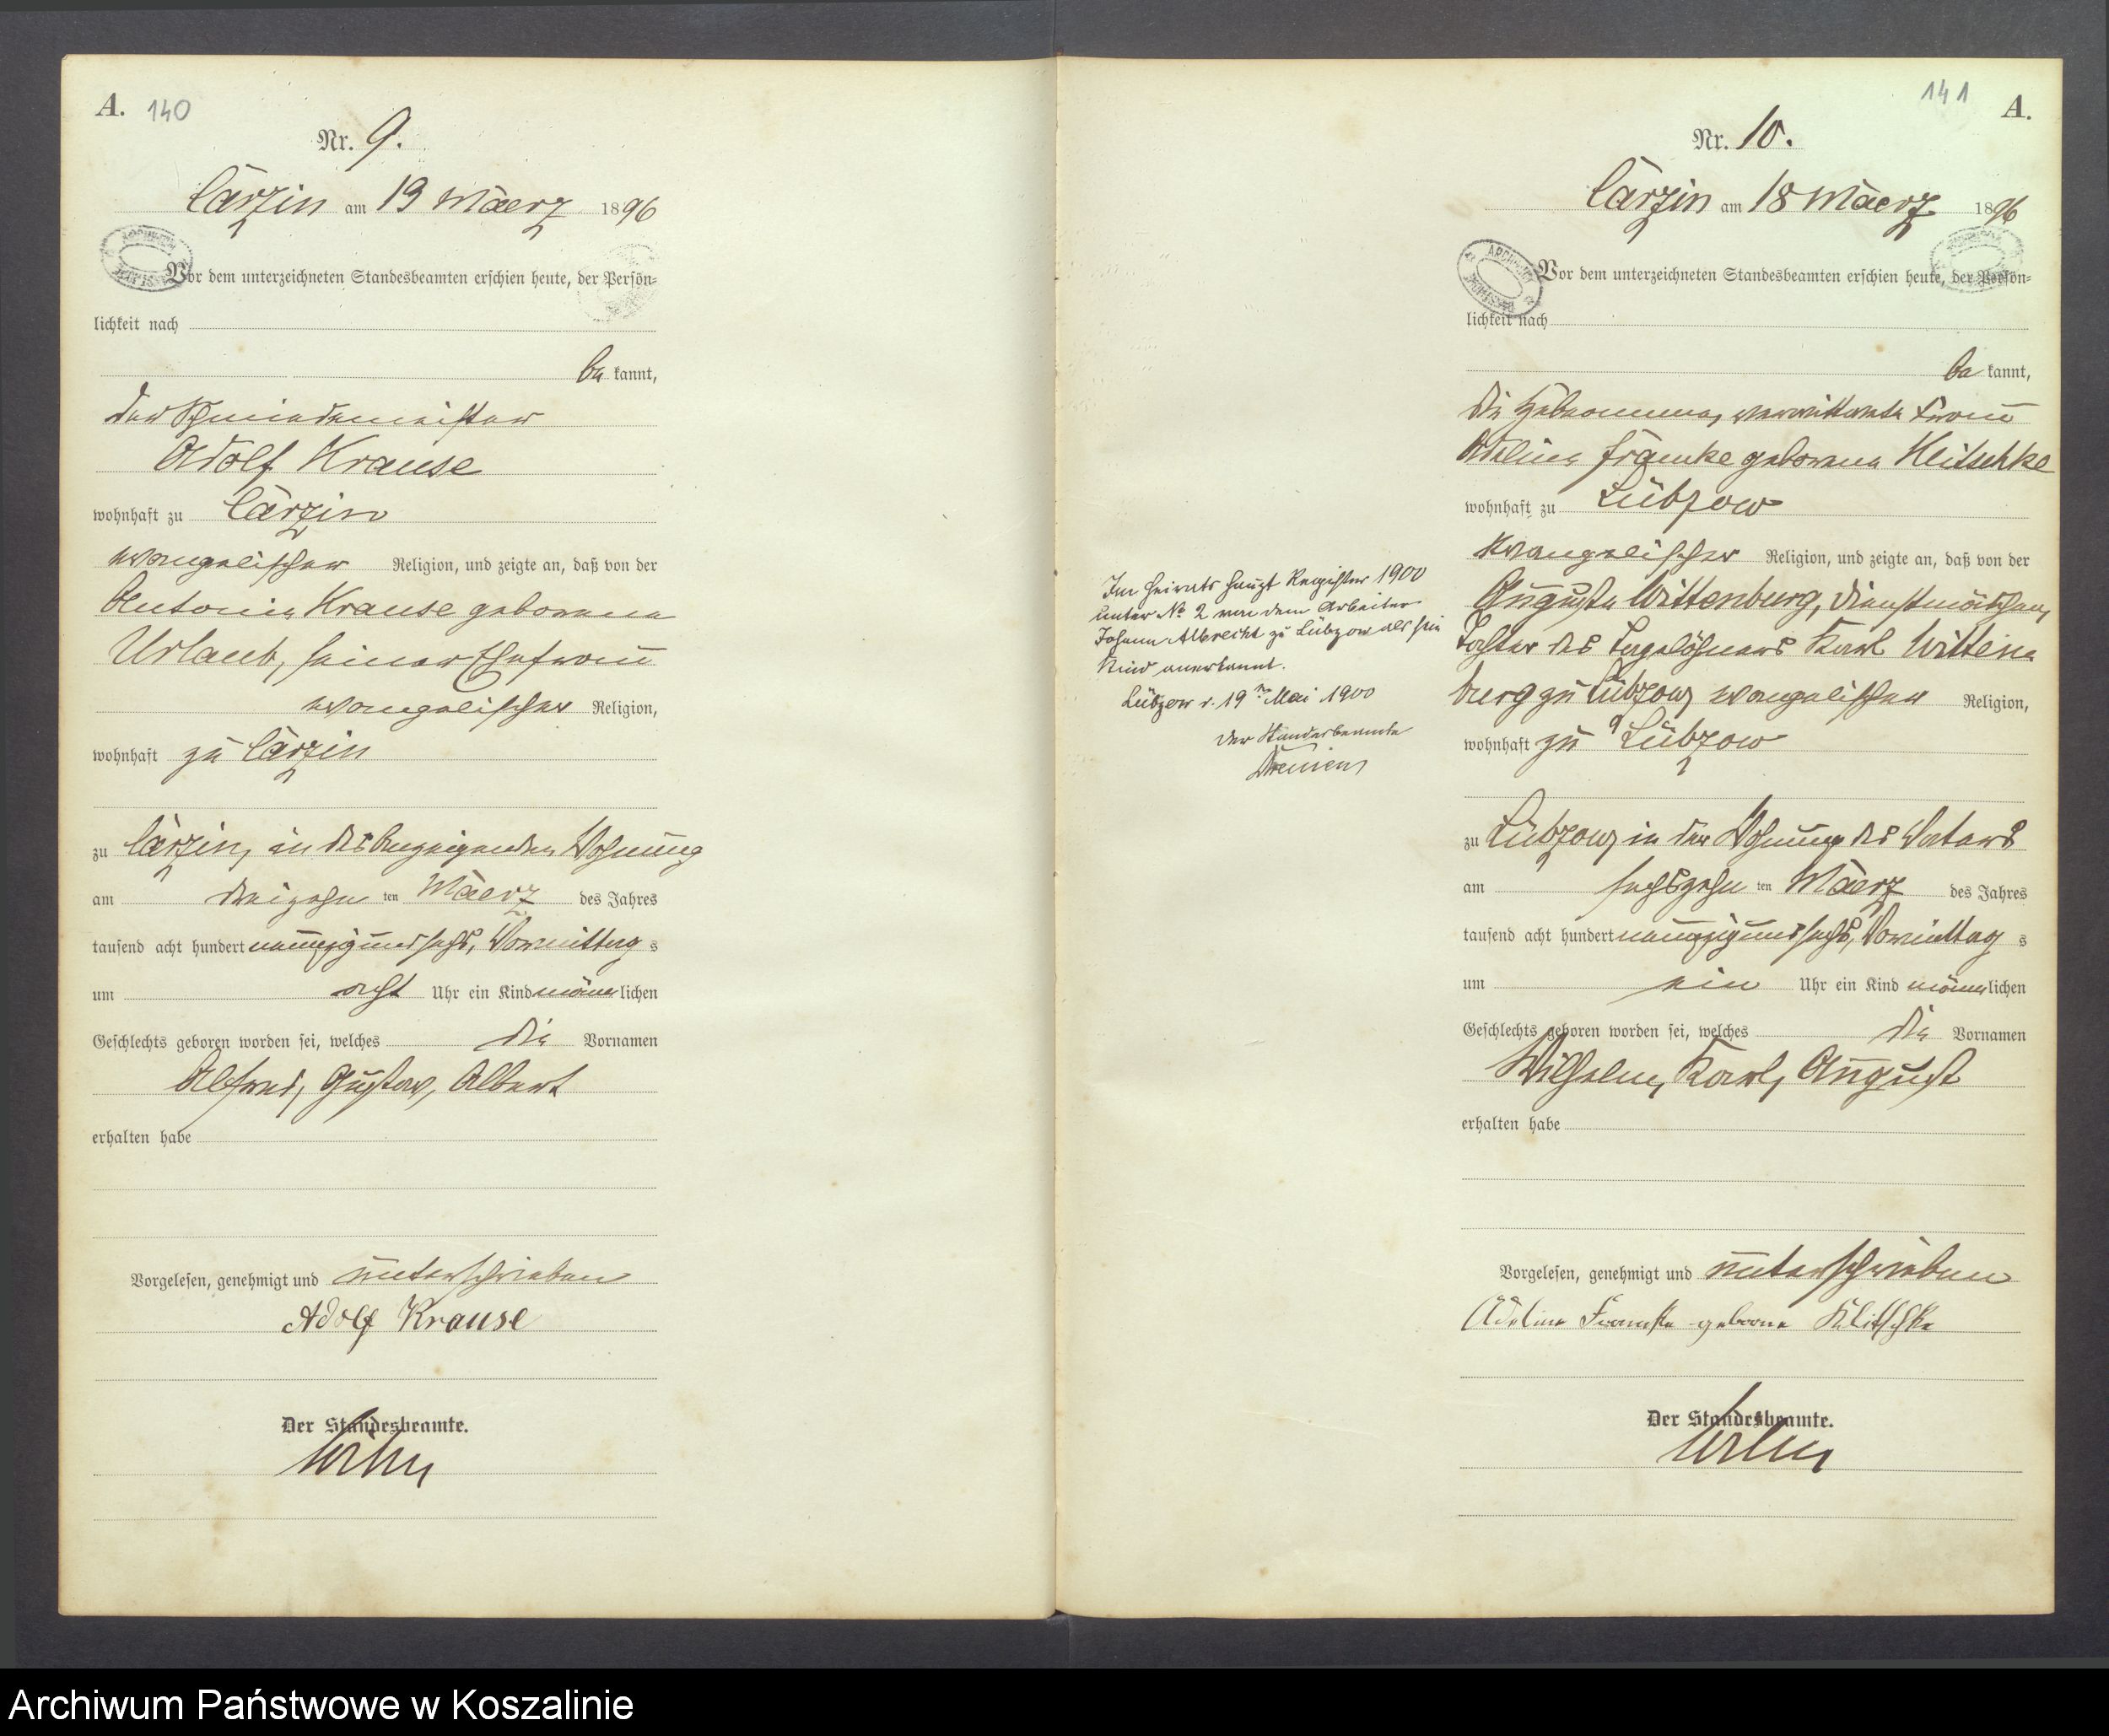 A. 140
Nr. 9.
Carzin am 19 Maerz 1896
Vor dem unterzeichneten Standesbeamten erschien heute, der Persön-
lichkeit nach
be kannt,
der Schmiedemeister
Adolf Krause
wohnhaft zu Carzin
evangelischer Religion, und zeigte an, daß von der
Antonie Krause geborene
Urlaub, seiner Ehefrau
evangelischer Religion,
wohnhaft zu Carzin
zu Carzin, in des Anzeigenden Wohnung
am dreizehn ten Maerz des Jahres
tausend acht hundert neunzig und sechs, Vormittag s
um acht Uhr ein Kind männ lichen
Geschlechts geboren worden sei, welches die Vornamen
Alfred, Gustav, Albert
erhalten habe
Vorgelesen, genehmigt und unterschrieben
Adolf Krause
Der Standesbeamte.
141 A.
Nr. 10.
Carzin am 18 Maerz 1896
Vor dem unterzeichneten Standesbeamten erschien heute, der Persön-
lichkeit nach
be kannt,
die Hebamme, verwittwete Frau
Adeline Framke geborene Klitschke
wohnhaft zu Lübzow
evangelischer Religion, und zeigte an, daß von der
Auguste Wittenburg, Dienstmädchen,
Tochter des Tagelöhners Karl Witten
burg zu Lübzow, evangelischer Religion,
wohnhaft zu Lübzow
zu Lübzow, in der Wohnung des Vaters
am sechszehn ten Maerz des Jahres
tausend acht hundert neunzig und sechs, Vormittag s
um ein Uhr ein Kind männ lichen
Geschlechts geboren worden sei, welches die Vornamen
Wilhelm, Karl, August
erhalten habe
Vorgelesen, genehmigt und unterschrieben
Adeline Framke geborne Klitschke
Der Standesbeamte.
Im Heirats Haupt Register 1900
unter No 2 von dem Arbeiter
Johann Albrecht zu Lübzow als sein
Kind anerkannt.
Lübzow d. 19 Mai 1900
Der Standesbeamte
Archiwum Państwowe w Koszalinie